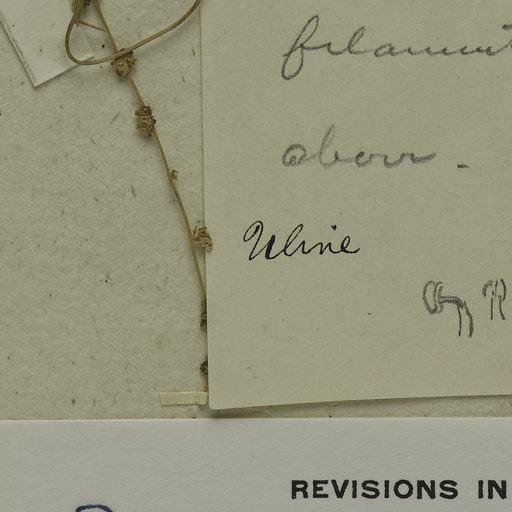 filament
above.
Uline
REVISIONS IN